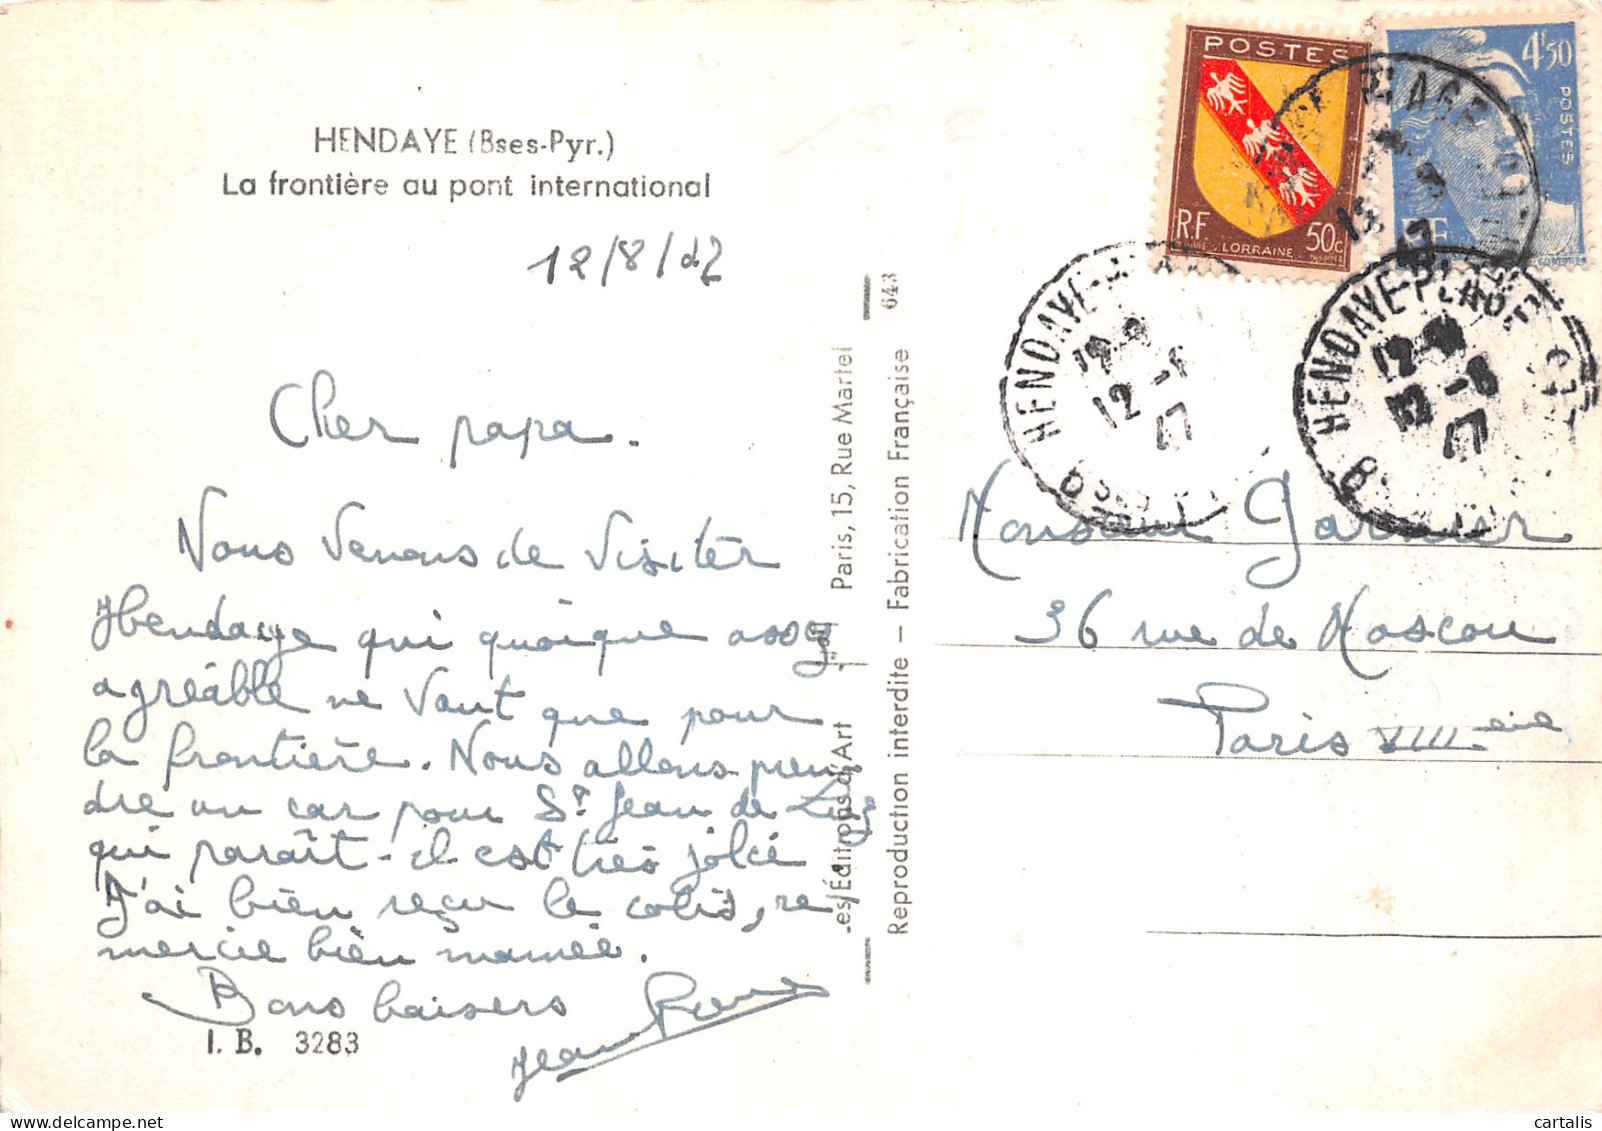 HENDAYE (Bses-Pyr.)
La frontière au pont international
12/8/47
Cher papa.
Nous venons de visiter
Hendaye qui quoique assez
agréable ne vaut que pour
la frontière. Nous allons pren
dre un car pour St Jean de Luz
qui parait-il est très jolie
J'ai bien reçu le colis, re/
mercie bien mamée.
Bons baisers
Jean Pierre
I. B. 3283
Les Éditions d'Art
Paris, 15, Rue Martel
643
Reproduction interdite — Fabrication Française
POSTES
R.F.
LORRAINE
50c
4F50
POSTES
RF
HENDAYE-PLAGE
12 -8
47
HENDAYE-PLAGE
12 -8
47
Monsieur Garnier
36 rue de Moscou
Paris VIIIeme
cartalis